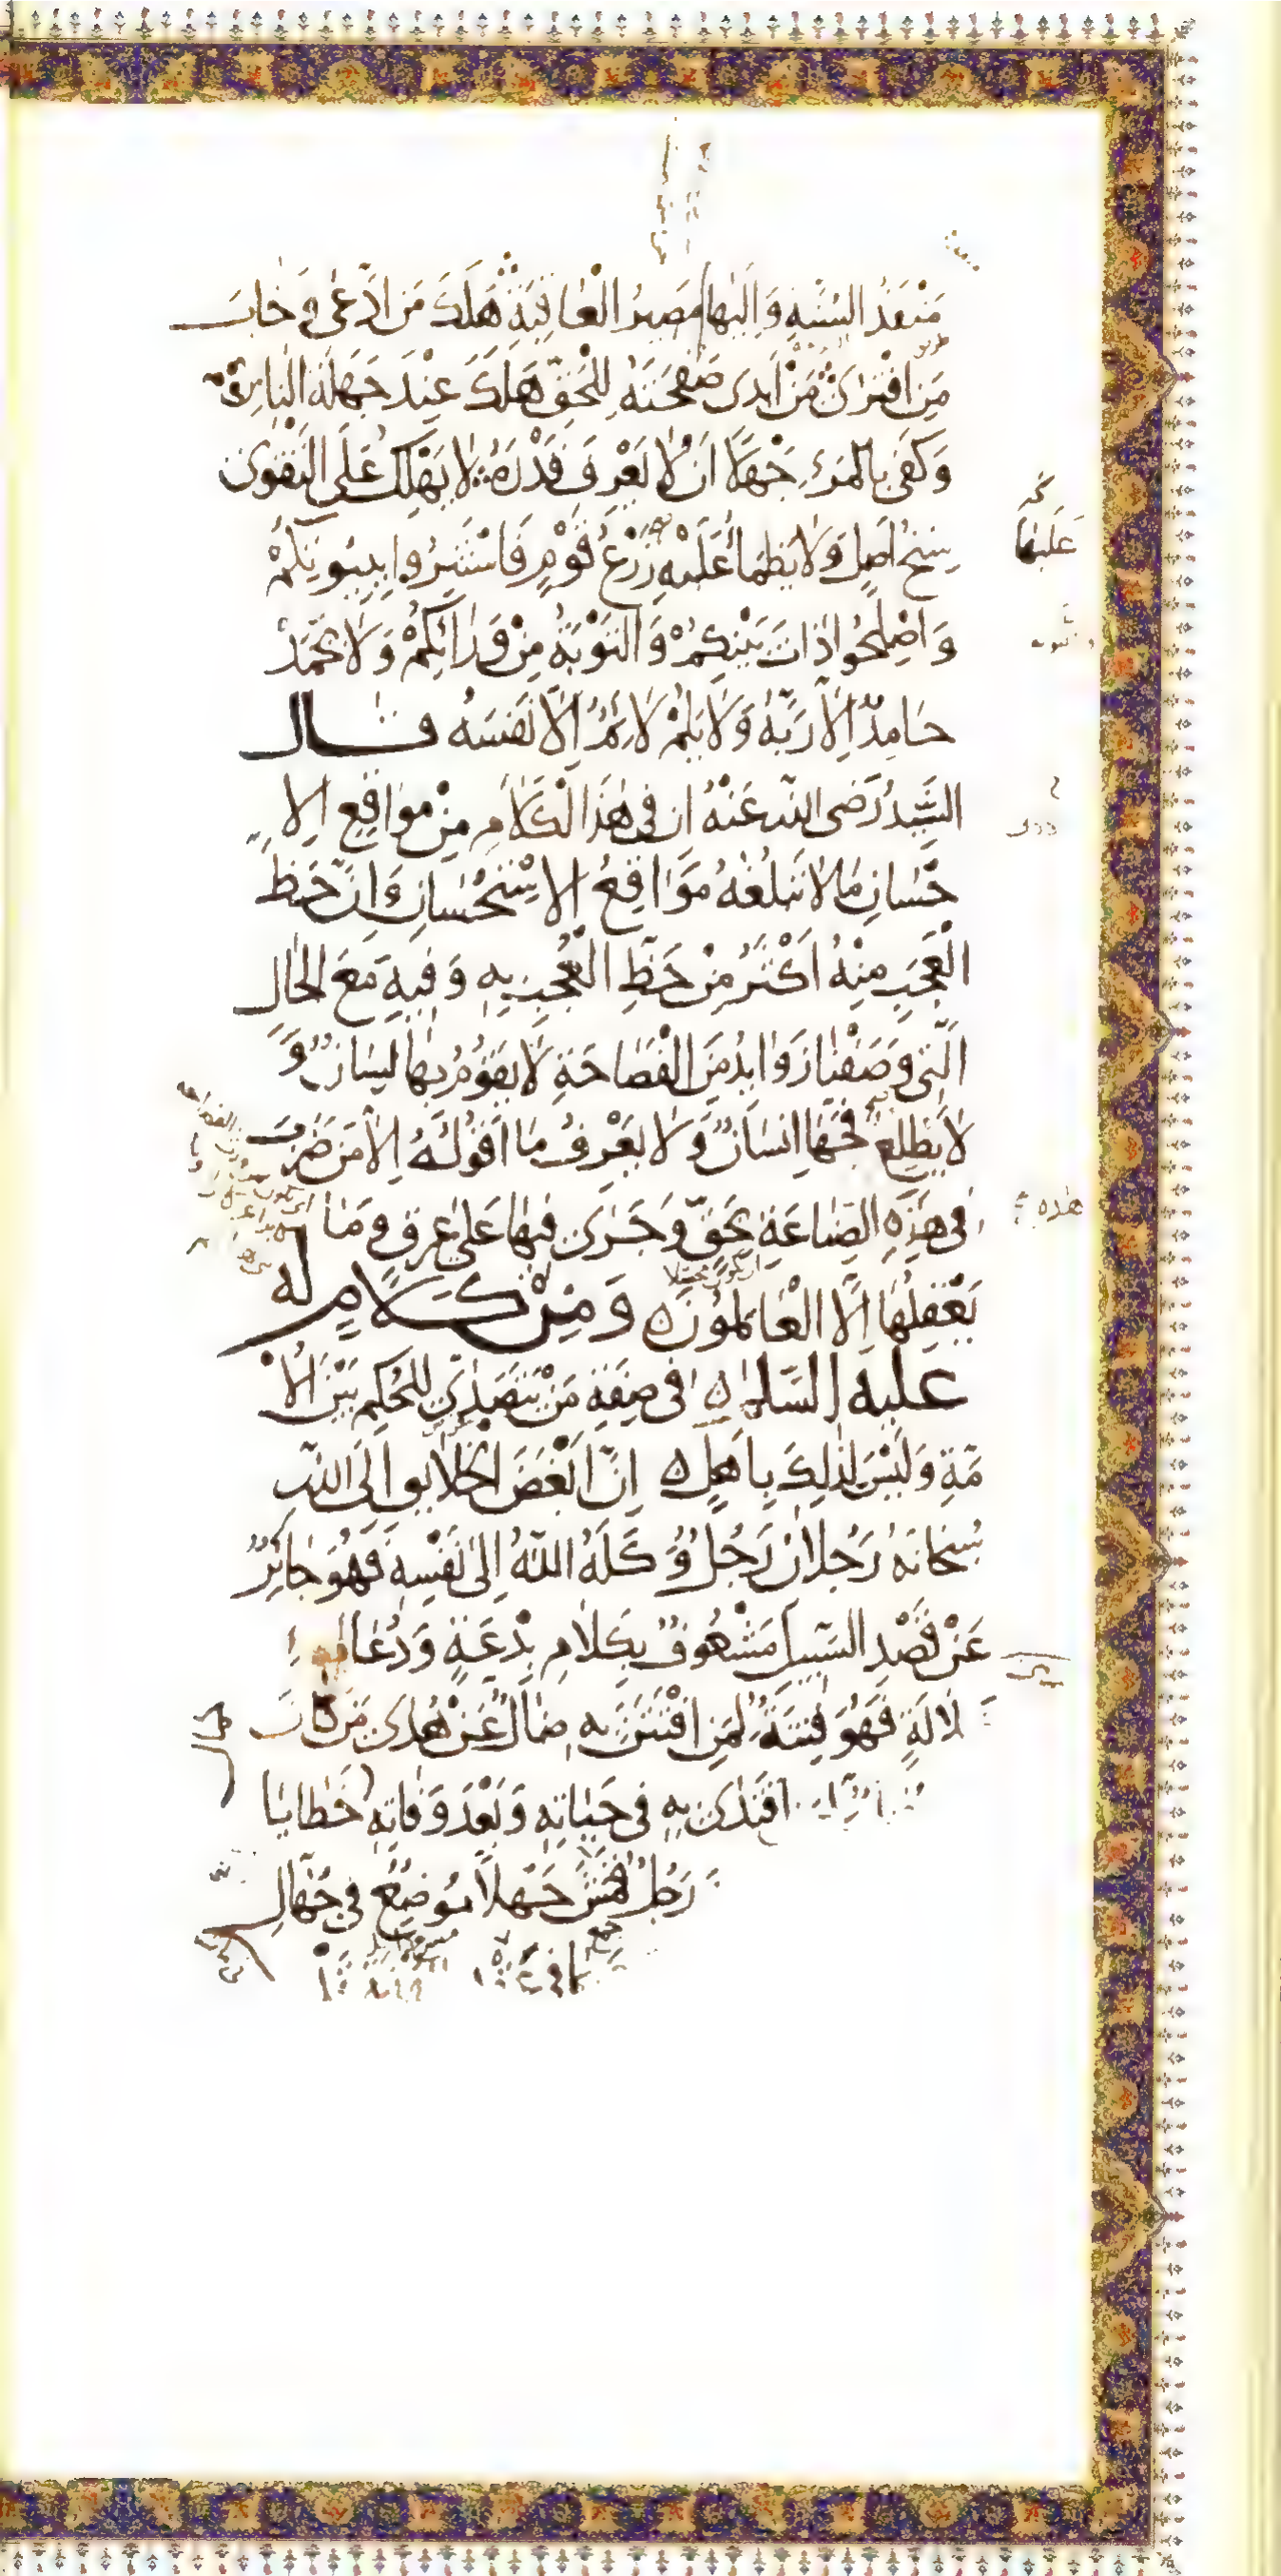 مَنْفَذُ السُّنَّةِ وَاِلَيْهَا مَصِيرُ الْعَاقِبَةِ هَلَكَ مَنِ ادَّعٰى وَخَابَ
مَنِ افْتَرٰى مَنْ اَبْدٰى صَفْحَتَهُ لِلْحَقِّ هَلَكَ عِنْدَ جَهَلَةِ النَّاسِ
وَكَفٰى بِالْمَرْءِ جَهْلًا اَنْ لَا يَعْرِفَ قَدْرَهُ لَا يَهْلِكُ عَلَى التَّقْوٰى
سِنْخُ اَصْلٍ وَلَا يَظْمَأُ عَلَيْهِ زَرْعُ قَوْمٍ فَاسْتَتِرُوا بِبُيُوتِكُمْ
عَلَيْهَا
وَاَصْلِحُوا ذَاتَ بَيْنِكُمْ وَالتَّوْبَةُ مِنْ وَرَائِكُمْ وَلَا يَحْمَدْ
حَامِدٌ اِلَّا رَبَّهُ وَلَا يَلُمْ لَائِمٌ اِلَّا نَفْسَهُ قال
السَّيِّدُ رَضِىَ اللّٰهُ عَنْهُ اِنَّ فِى هٰذَا الْكَلَامِ مِنْ مَوَاقِعِ الْاِ
حْسَانِ مَا لَا تَبْلُغُهُ مَوَاقِعُ الْاِسْتِحْسَانِ وَاِنَّ حَظَّ
الْعَجَبِ مِنْهُ اَكْثَرُ مِنْ حَظِّ الْعُجْبِ بِهِ وَفِيهِ مَعَ الْحَالِ
الَّتِى وَصَفْنَا زَوَائِدُ مِنَ الْفَصَاحَةِ لَا يَقُومُ بِهَا لِسَانٌ وَ
لَا يَطَّلِعُ فَجَّهَا اِنْسَانٌ وَلَا يَعْرِفُ مَا اَقُولُهُ اِلَّا مَنْ ضَرَبَ
فِى هٰذِهِ الصِّنَاعَةِ بِحَقٍّ وَجَرٰى فِيهَا عَلٰى عِرْقٍ وَمَا
هذه
يَعْقِلُهَا اِلَّا الْعَالِمُونَ وَمِنْ كَلَامٍ لَهُ
عليه السلام فِى صِفَةِ مَنْ يَتَصَدّٰى لِلْحُكْمِ بَيْنَ الْاُ
مَّةِ وَلَيْسَ لِذٰلِكَ بِاَهْلٍ اِنَّ اَبْغَضَ الْخَلَايِقِ اِلَى اللّٰهِ
سُبْحَانَهُ رَجُلَانِ رَجُلٌ وَكَلَهُ اللّٰهُ اِلٰى نَفْسِهِ فَهُوَ جَائِرٌ
عَنْ قَصْدِ السَّبِيلِ مَشْعُوفٌ بِكَلَامِ بِدْعَةٍ وَدُعَاءِ
لَالَةٍ فَهُوَ فِتْنَةٌ لِمَنِ افْتَتَنَ بِهِ ضَالٌّ عَنْ هُدٰى مَنْ كَانَ
اقْتَدٰى بِهِ فِى حَيَاتِهِ وَبَعْدَ وَفَاتِهِ خَطَايَا
رَجُلٌ قَمَشَ جَهْلًا مُوضِعٌ فِى جُهَّالِ